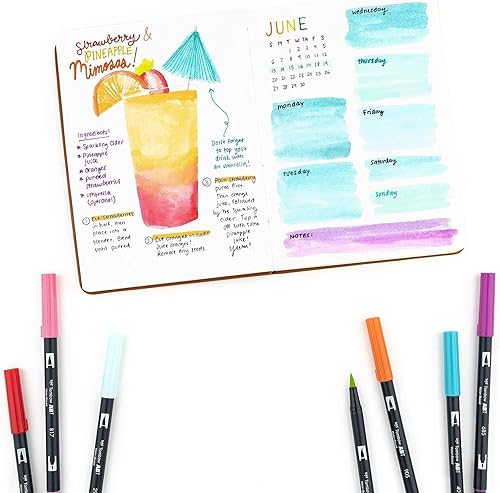 Strawberry &
PINEAPPLE
Mimosas!
Ingredients:
Sparkling Cider
Pineapple
juice
oranges
pureed
strawberries
umbrella
(optional)
Don't forget
to top your
drink with
an umbrella!
1 Cut strawberries
in half, then
place into a
blender. Blend
until pureed.
2 Cut oranges in half
Juice oranges!
Remove any seeds.
3 Pour strawberry
puree first.
Then orange
juice, followed
by the sparkling
cider. Top it
off with some
pineapple
juice!
Yumm!
JUNE
S M T W T F S
1 2 3 4 5
6 7 8 9 10 11 12
13 14 15 16 17 18 19
20 21 22 23 24 25 26
27 28 29 30
monday
tuesday
wednesday
thursday
Friday
Saturday
Sunday
NOTES:
Tombow ABT
817
Tombow ABT
Tombow ABT
Tombow ABT
Tombow ABT
905
Tombow ABT
Tombow ABT
685